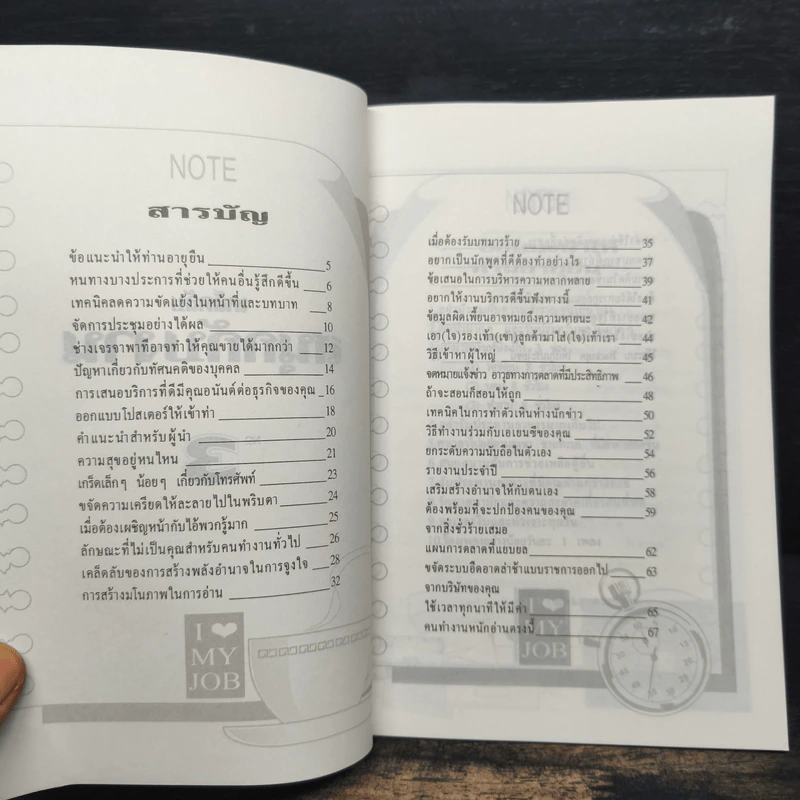 NOTE
สารบัญ
ข้อแนะนำให้ท่านอายุยืน 5
หนทางบางประการที่ช่วยให้คนอื่นรู้สึกดีขึ้น 6
เทคนิคลดความขัดแย้งในหน้าที่และบทบาท 8
จัดการประชุมอย่างได้ผล 10
ช่างเจรจาพาทีอาจทำให้คุณขายได้มากกว่า 12
ปัญหาเกี่ยวกับทัศนคติของบุคคล 14
การเสนอบริการที่ดีมีคุณอนันต์ต่อธุรกิจของคุณ 16
ออกแบบโปสเตอร์ให้เข้าท่า 18
คำแนะนำสำหรับผู้นำ 20
ความสุขอยู่หนไหน 21
เกร็ดเล็กๆ น้อยๆ เกี่ยวกับโทรศัพท์ 23
ขจัดความเครียดให้ละลายไปในพริบตา 24
เมื่อต้องเผชิญหน้ากับไอ้พวกรู้มาก 25
ลักษณะที่ไม่เป็นคุณสำหรับคนทำงานทั่วไป 26
เคล็ดลับของการสร้างพลังอำนาจในการจูงใจ 28
การสร้างมโนภาพในการอ่าน 32
I ❤ MY JOB
NOTE
เมื่อต้องรับบทมารร้าย 35
อยากเป็นนักพูดที่ดีต้องทำอย่างไร 37
ข้อเสนอในการบริหารความหลากหลาย 39
อยากให้งานบริการดีขึ้นฟังทางนี้ 41
ข้อมูลผิดเพี้ยนอาจหมายถึงความหายนะ 42
เอา(ใจ)รองเท้า(เขา)ลูกค้ามาใส่(ใจ)เท้าเรา 44
วิธีเข้าหาผู้ใหญ่ 45
จดหมายแจ้งข่าว อาวุธทางการตลาดที่มีประสิทธิภาพ 46
ถ้าจะสอนก็สอนให้ถูก 48
เทคนิคในการทำตัวเป็นห่างนักข่าว 50
วิธีทำงานร่วมกับเอเยนซีของคุณ 52
ยกระดับความนับถือในตัวเอง 54
รายงานประจำปี 56
เสริมสร้างอำนาจให้กับตนเอง 58
ต้องพร้อมที่จะปกป้องคนของคุณ 59
จากสิ่งชั่วร้ายเสมอ
แผนการตลาดที่แยบยล 62
ขจัดระบบอืดอาดล่าช้าแบบราชการออกไป 63
จากบริษัทของคุณ
ใช้เวลาทุกนาทีให้มีค่า 65
คนทำงานหนักอ่านตรงนี้ 67
I ❤ MY JOB